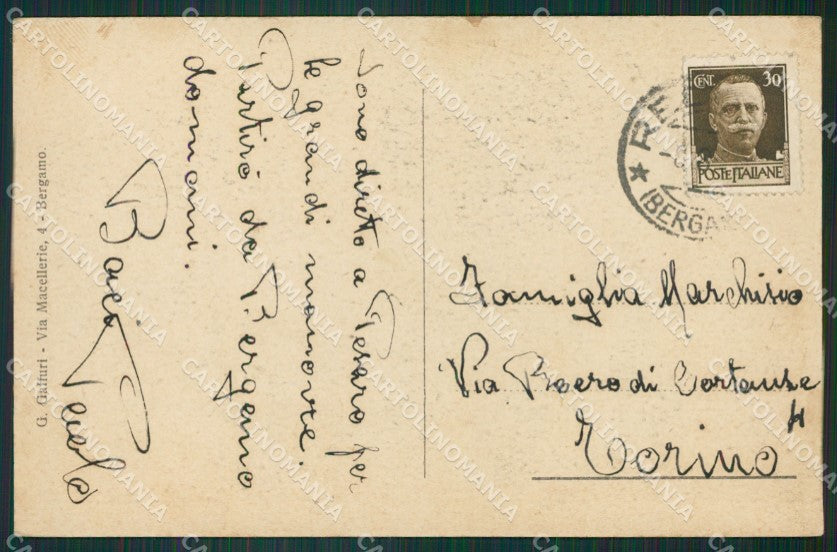 Sono diretto a Pesaro per
le grandi manovre.
Partirò da Bergamo
domani.
Baci
Paolo
G. Gaffuri - Via Macellerie, 4 - Bergamo.
CENT. 30
POSTE ITALIANE
(BERGAM
Famiglia Marchisio
Via Roero di Cortanze
4
Torino
CARTOLINOMANIA